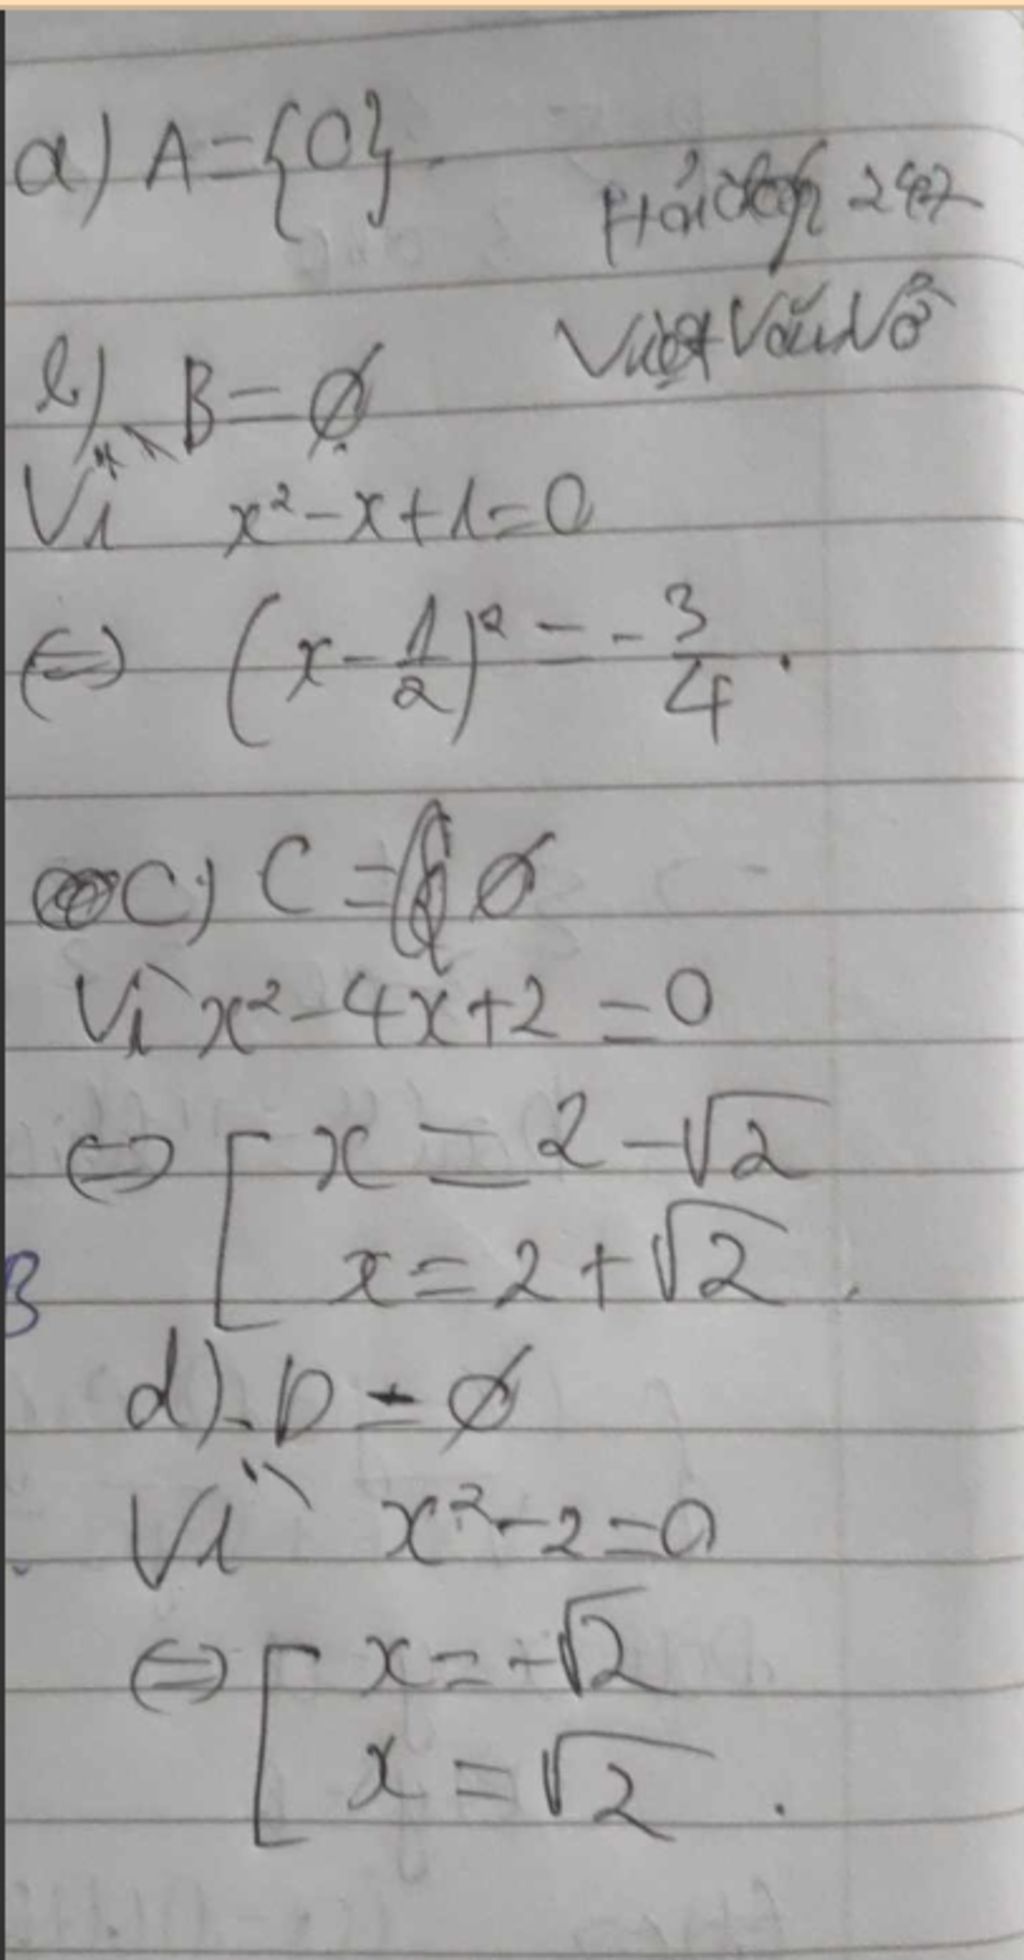 a) A = {0}.
Hỏi đáp 247
Việt Văn Võ
b) B = ∅
Vì x² - x + 1 = 0
⇔ (x - 1/2)² = - 3/4.
c) C = ∅
Vì x² - 4x + 2 = 0
⇔ [ x = 2 - √2
x = 2 + √2.
B
d) D = ∅
Vì x² - 2 = 0
⇔ [ x = -√2
x = √2.